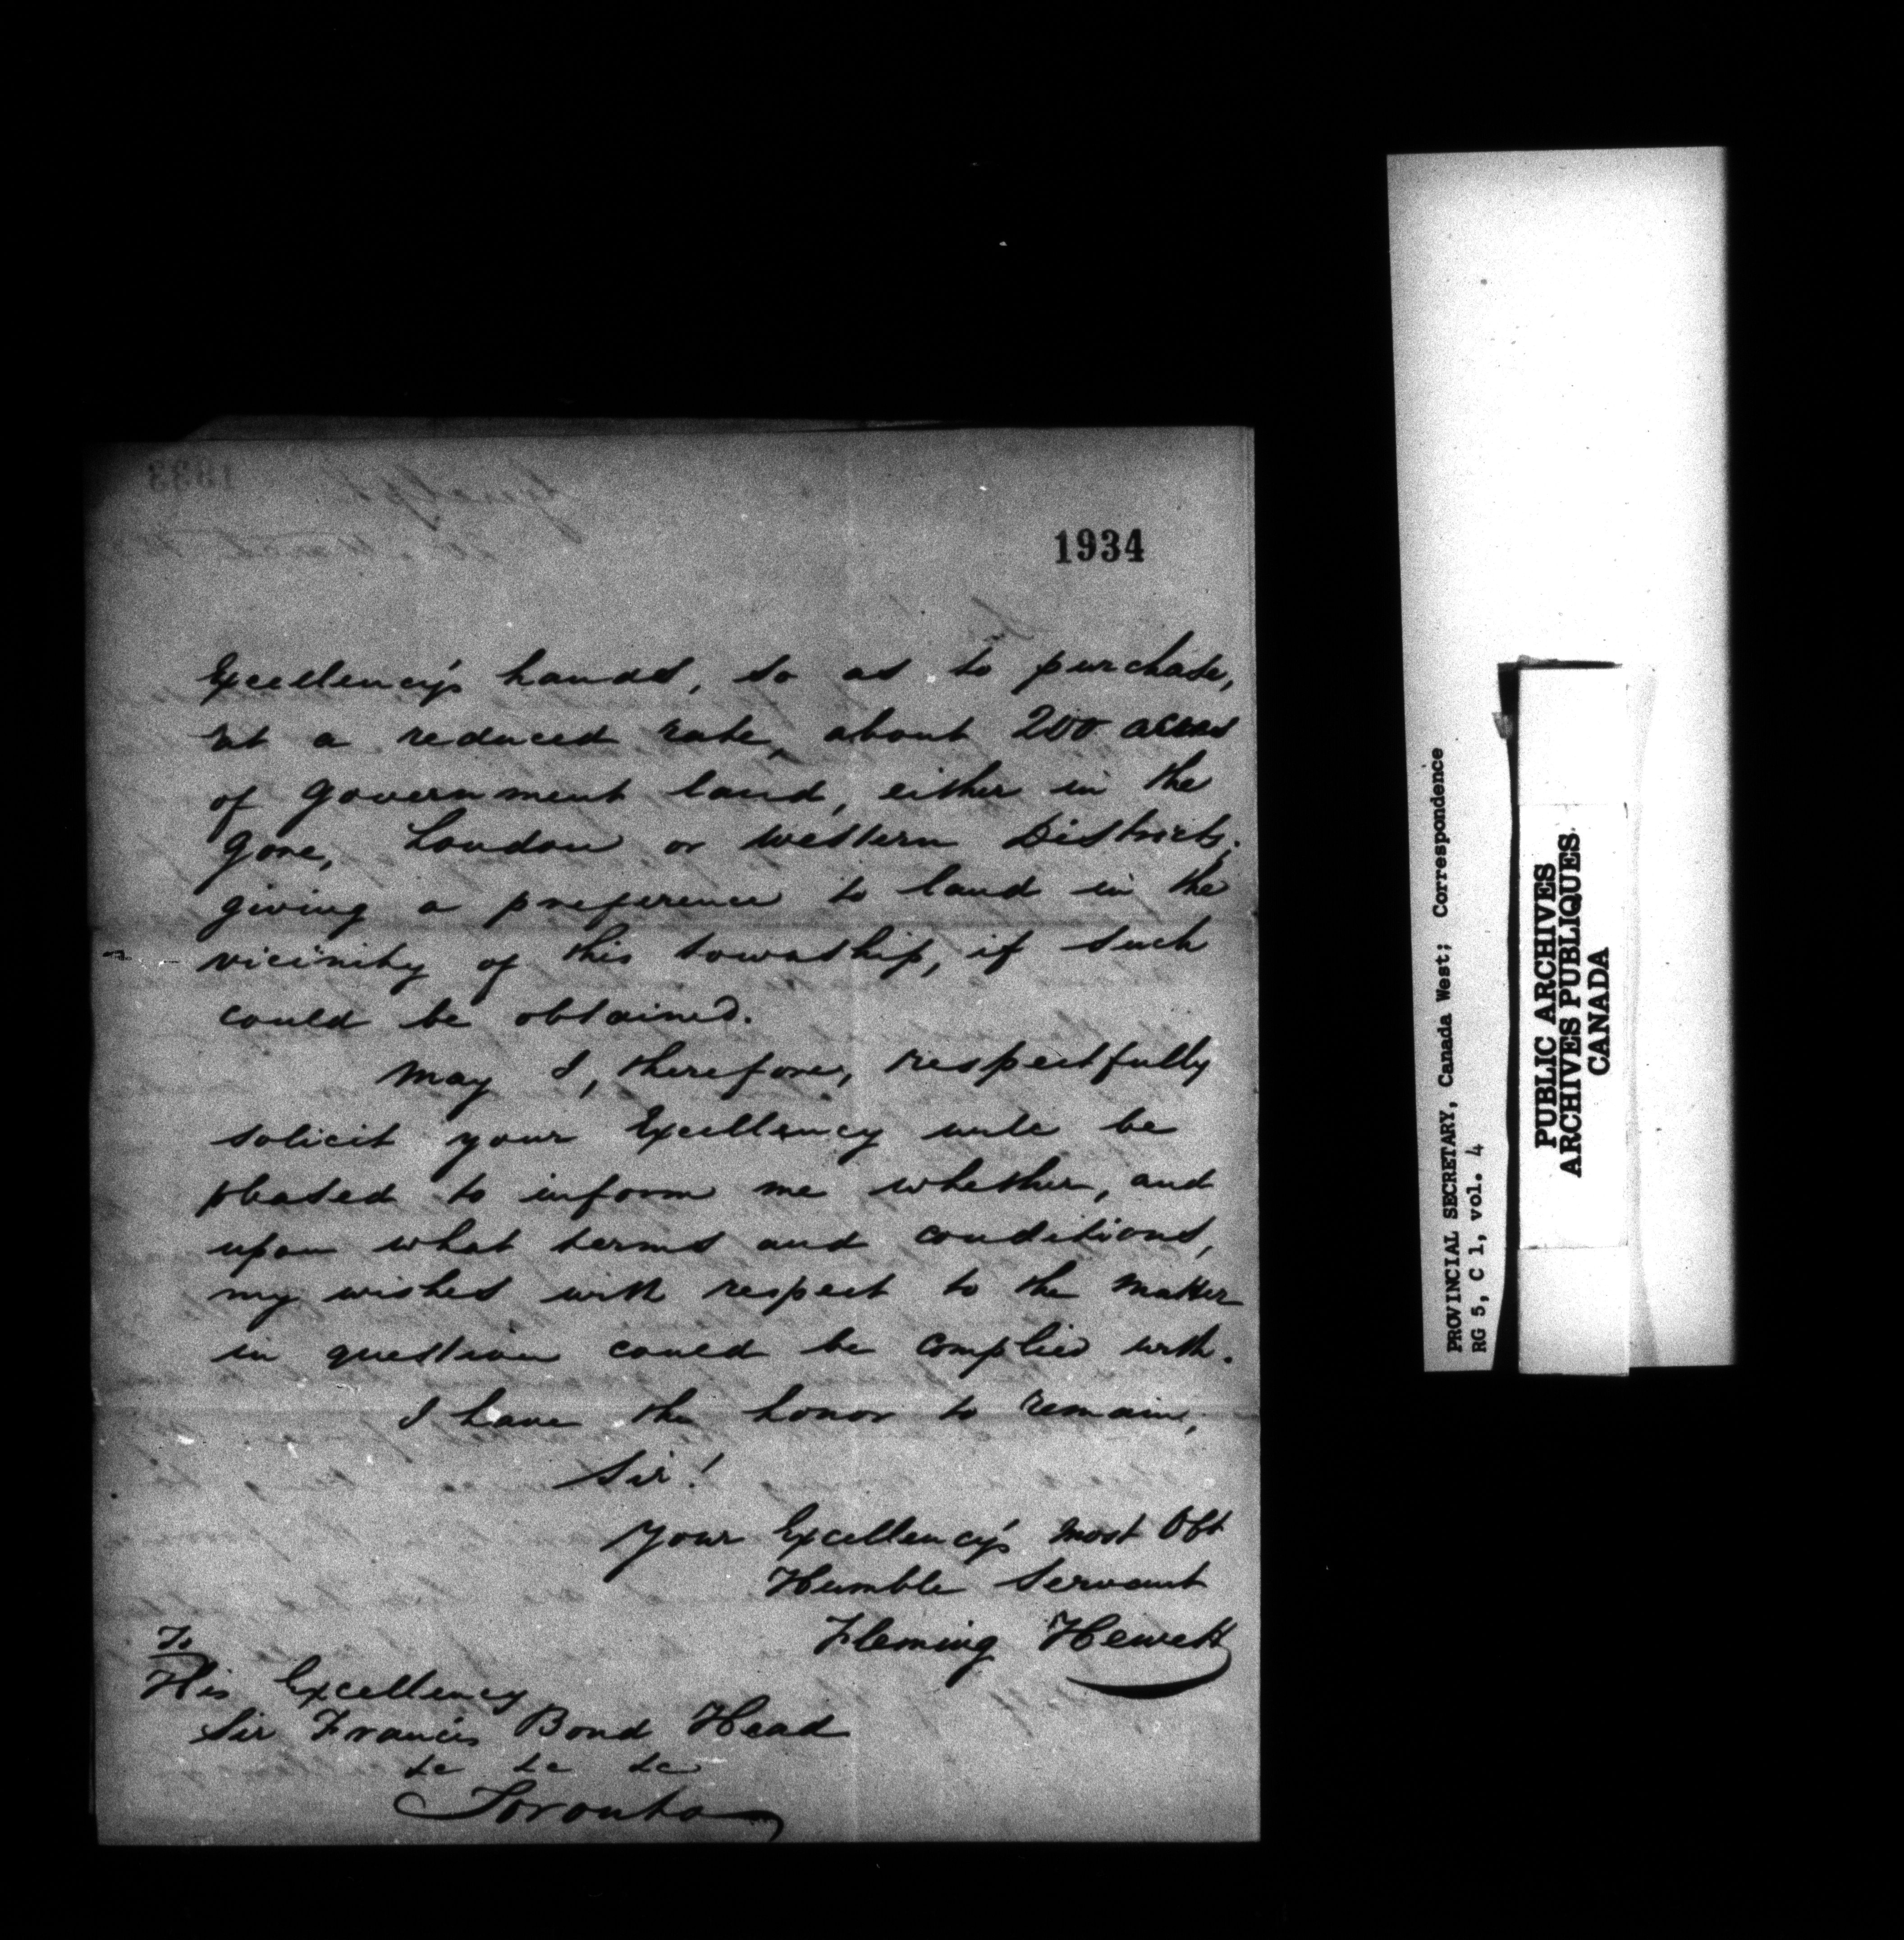 1934
Excellency's hands, so as to purchase,
at a reduced rate, about 200 acres
of government land, either in the
Gore, London or Western Districts;
giving a preference to land in the
vicinity of this township, if such
could be obtained.
May I, therefore, respectfully
solicit your Excellency will be
pleased to inform me whether, and
upon what terms and conditions,
my wishes with respect to the matter
in question could be complied with.
I have the honor to remain,
Sir!
Your Excellency's most Obt
Humble Servant
Fleming Hewett
To
His Excellency
Sir Francis Bond Head
&c &c &c
Toronto
PROVINCIAL SECRETARY, Canada West; Correspondence
RG 5, C 1, vol. 4
PUBLIC ARCHIVES
ARCHIVES PUBLIQUES
CANADA